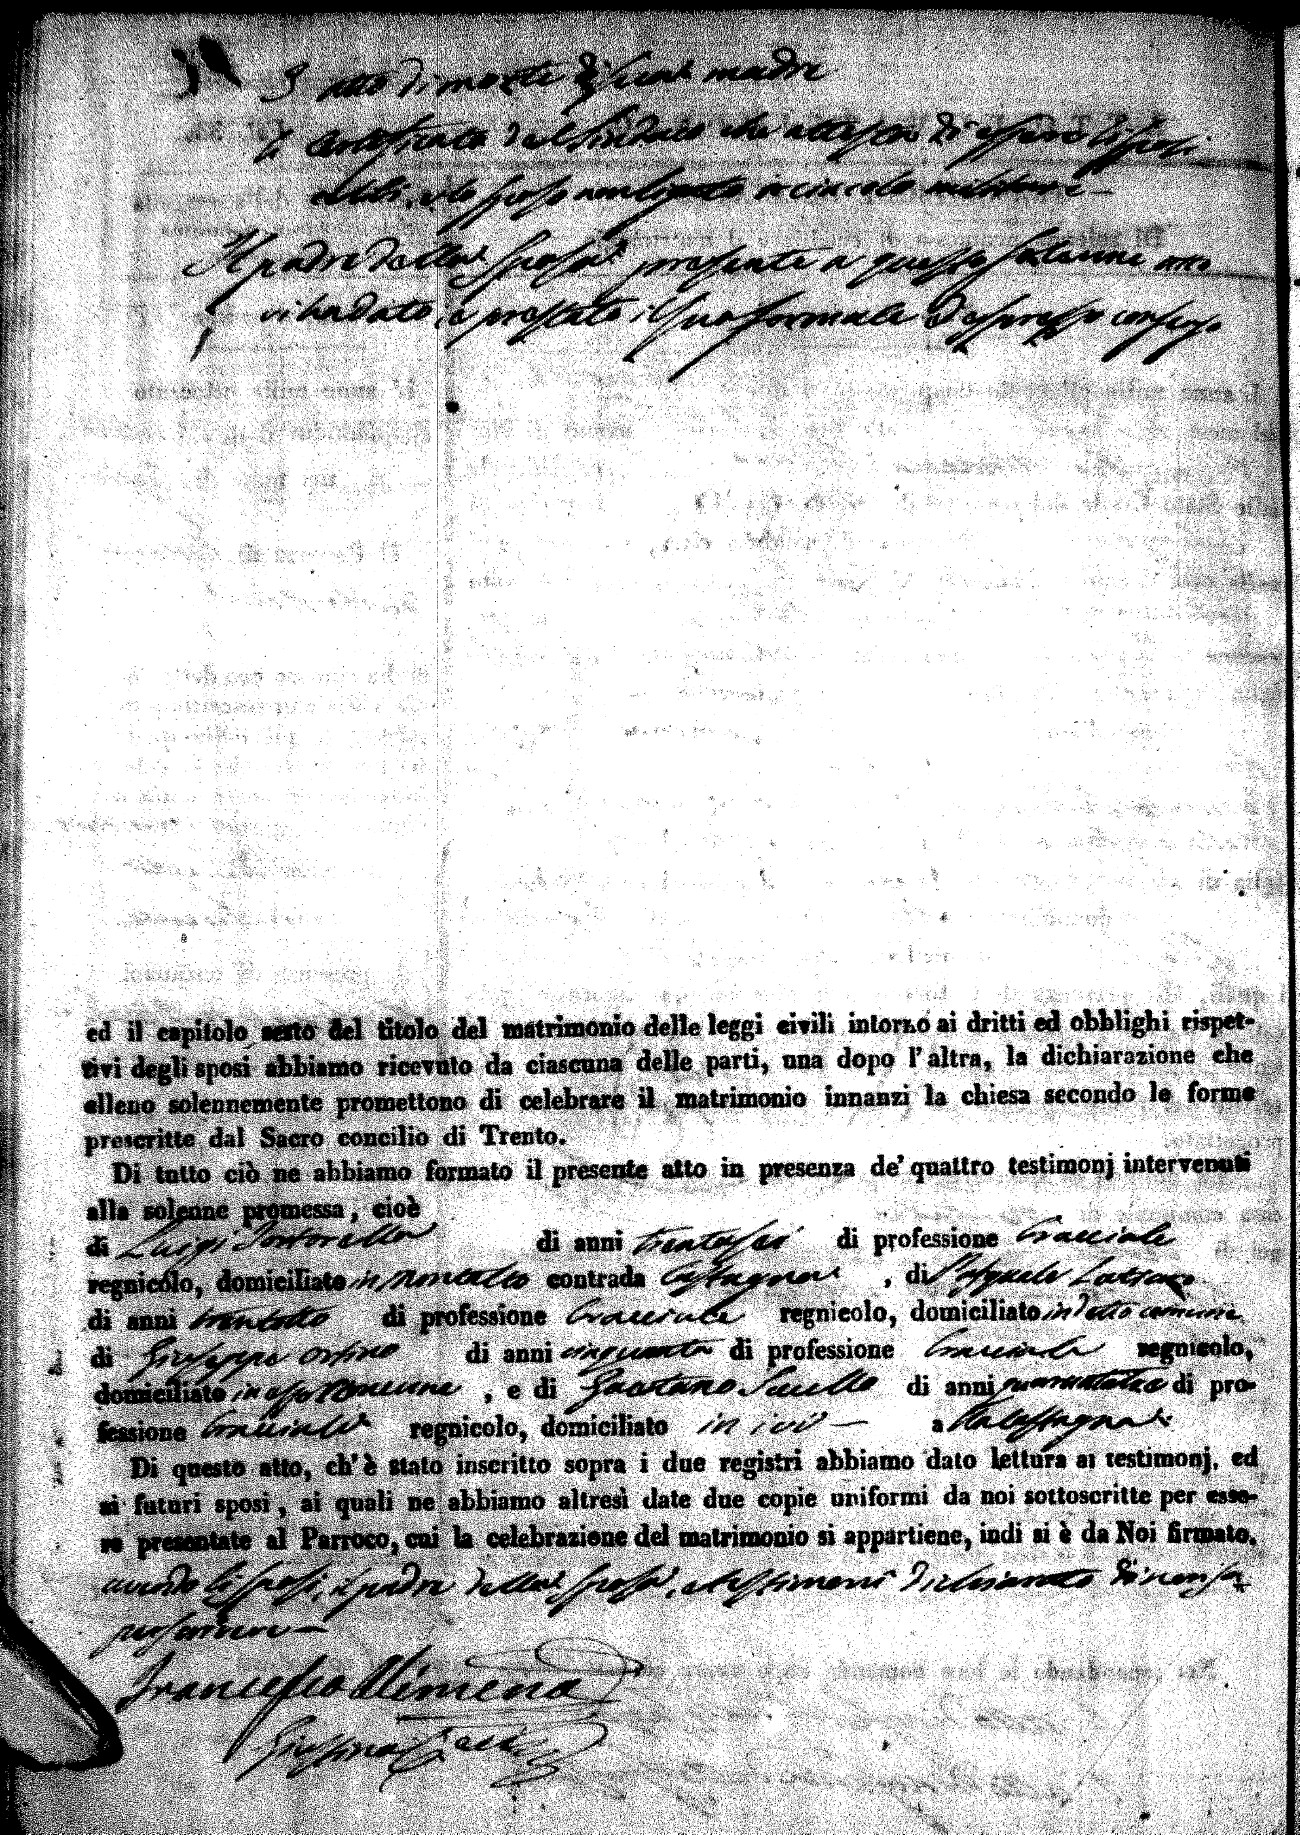 3 atto di morte di sua madre
4 Certificato del Sindaco che attesta di essere li sposi
celibi, e lo sposo non legato in vincolo militare —
Il padre della sposa presente a questo solenne atto
vi ha dato, e prestato il suo formale ed espresso consenso
ed il capitolo sesto del titolo del matrimonio delle leggi civili intorno ai dritti ed obblighi rispet-
tivi degli sposi abbiamo ricevuto da ciascuna delle parti, una dopo l'altra, la dichiarazione che
elleno solennemente promettono di celebrare il matrimonio innanzi la chiesa secondo le forme
prescritte dal Sacro concilio di Trento.
Di tutto ciò ne abbiamo formato il presente atto in presenza de' quattro testimonj intervenuti
alla solenne promessa, cioè
di Luigi Portorella di anni trentasei di professione bracciale
regnicolo, domiciliato in Montalto contrada Castagna , di Pasquale
di anni trentotto di professione bracciale regnicolo, domiciliato in detto comune
di Giuseppe Orfino di anni cinquanta di professione bracciale regnicolo,
domiciliato in esso comune , e di Gaetano di anni di pro-
fessione bracciale regnicolo, domiciliato in ivi — a Castagna
Di questo atto, ch'è stato inscritto sopra i due registri abbiamo dato lettura ai testimonj, ed
ai futuri sposi, ai quali ne abbiamo altresì date due copie uniformi da noi sottoscritte per esse-
re presentate al Parroco, cui la celebrazione del matrimonio si appartiene, indi si è da Noi firmato,
avendo li sposi, il padre della sposa, e testimoni dichiarato di non sa
per scrivere —
Francesco Alimena